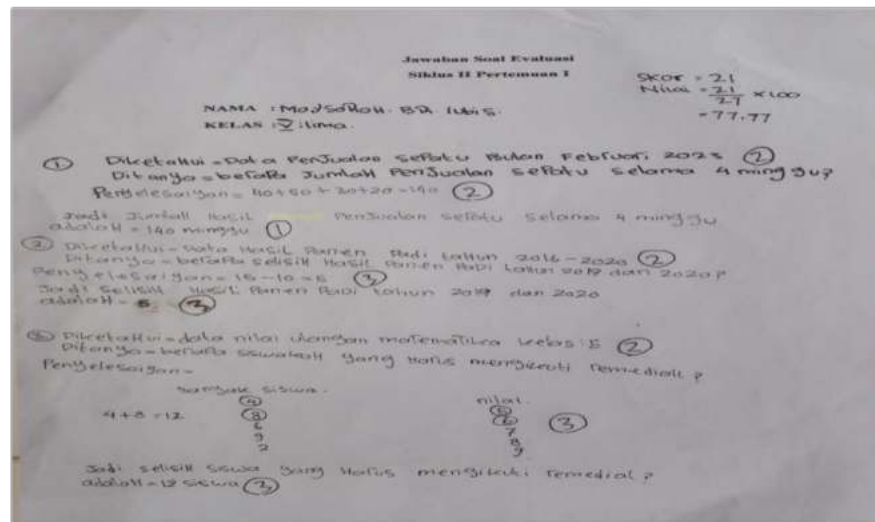 Jawaban Soal Evaluasi
Siklus II Pertemuan I
Skor = 21
Nilai = 21/27 x 100
= 77,77
NAMA : BR. lubis.
KELAS : V : lima.
① Diketahui = Data Penjualan sepatu Bulan Februari 2023 ②
Ditanya = berapa Jumlah Penjualan sepatu selama 4 minggu?
Penyelesaiyan = 40+50+30+20=140 ②
Jadi Jumlah Hasil Penjualan sepatu selama 4 minggu
adalah = 140 minggu ①
② Diketahui = Data Hasil Panen Padi tahun 2016-2020 ②
Ditanya = berapa selisih Hasil Panen Padi tahun 2019 dan 2020?
Penyelesaiyan = 15-10=5 ③
Jadi selisih Hasil Panen Padi tahun 2019 dan 2020
adalah = 5 ③
Diketahui = data nilai ulangan matematika kelas : 5 ②
Ditanya = berapa siswakah yang Harus mengikuti remedial ?
Penyelesaiyan =
banyak siswa. nilai.
④
4+8=12 ⑧ ⑥ ③
6 7
9 8
2 9
Jadi selisih siswa yang Harus mengikuti remedial ?
adalah = 12 siswa ③